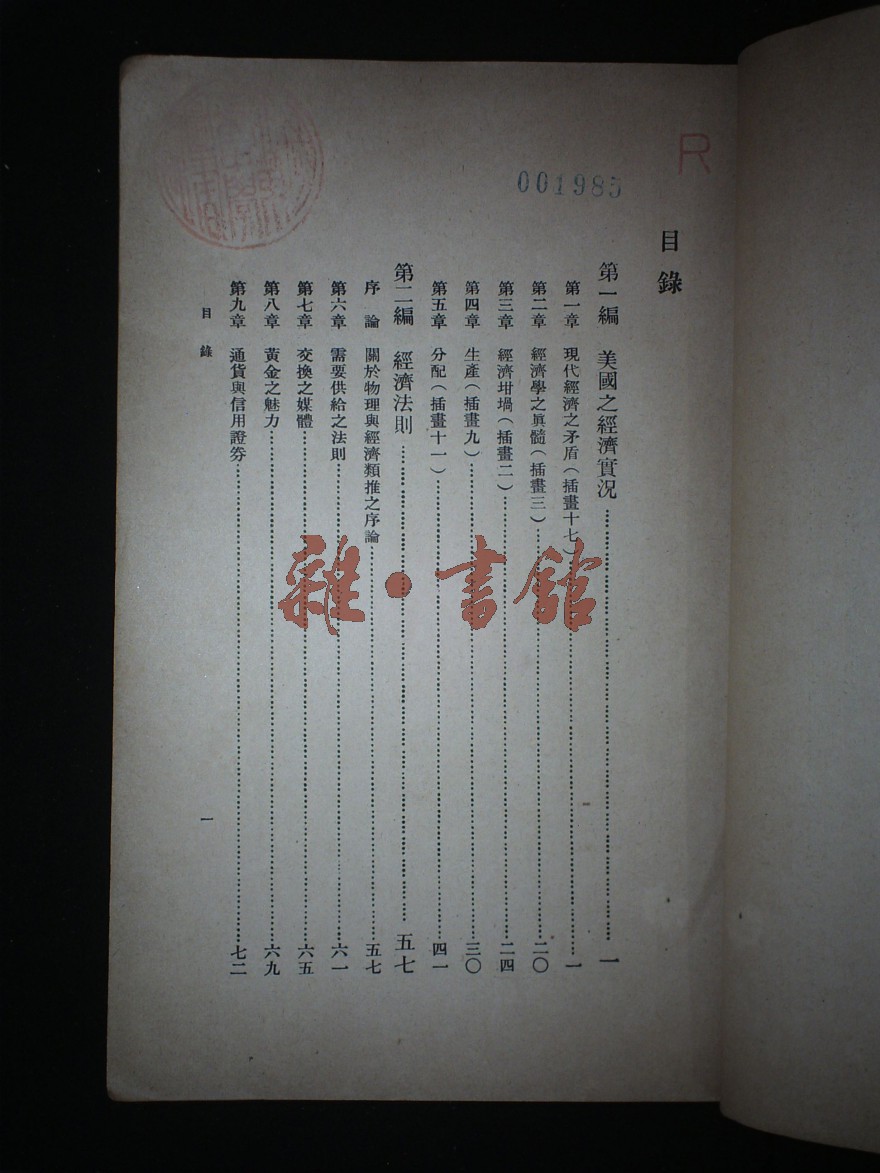 R
001985
目錄
第一編 美國之經濟實況……一
第一章 現代經濟之矛盾(插畫十七)……一
第二章 經濟學之眞髓(插畫三)……二〇
第三章 經濟坩堝(插畫二)……二四
第四章 生產(插畫九)……三〇
第五章 分配(插畫十一)……四一
第二編 經濟法則……五七
序論 關於物理與經濟類推之序論……五七
第六章 需要供給之法則……六一
第七章 交換之媒體……六五
第八章 黃金之魅力……六九
第九章 通貨與信用證券……七二
目錄 一
雜·書館